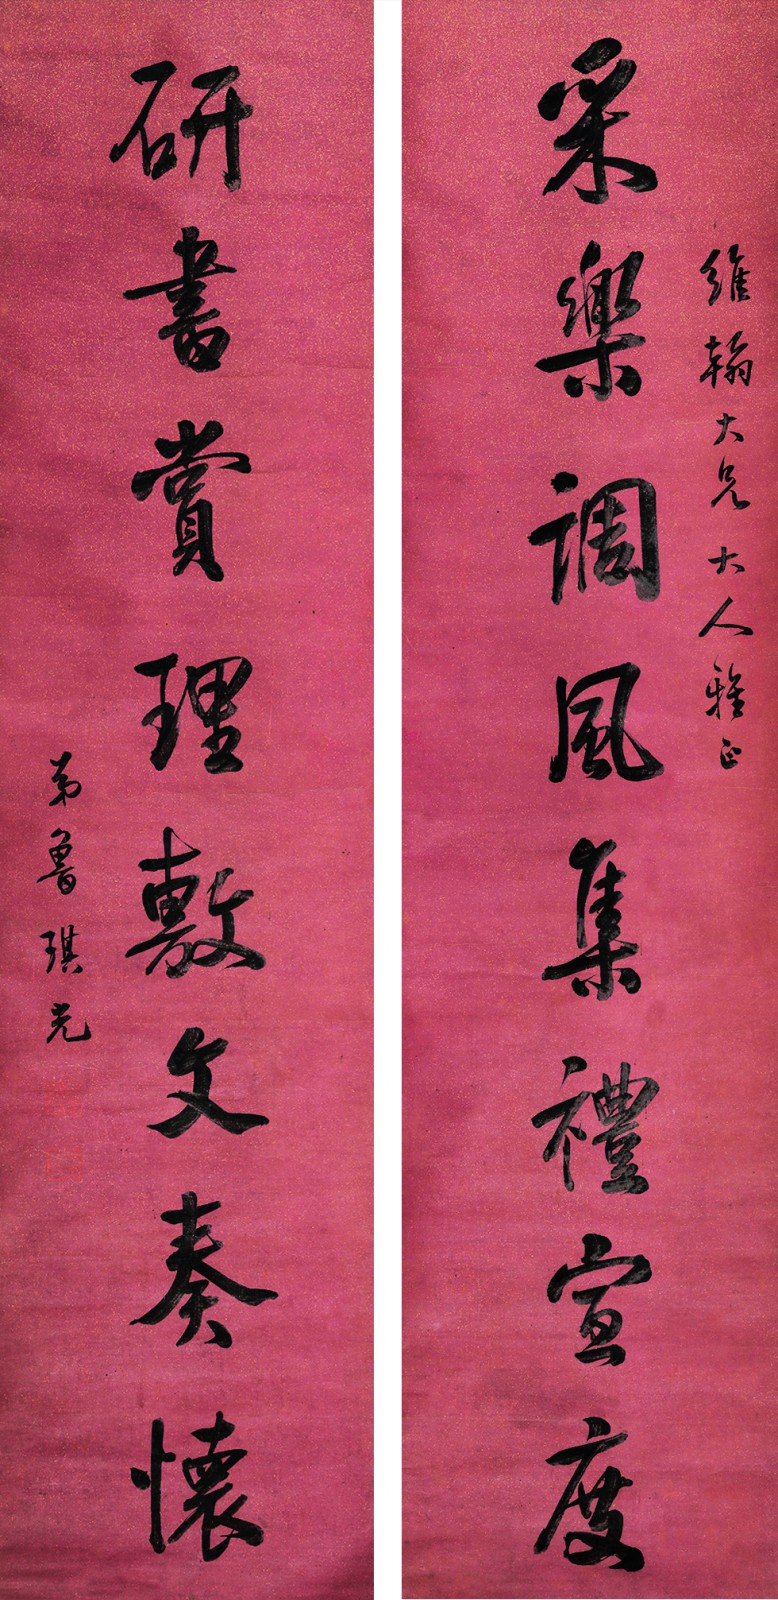 維翰大兄大人雅正
采樂調風集禮宣度
研書賞理敷文奏懷
弟魯琪光